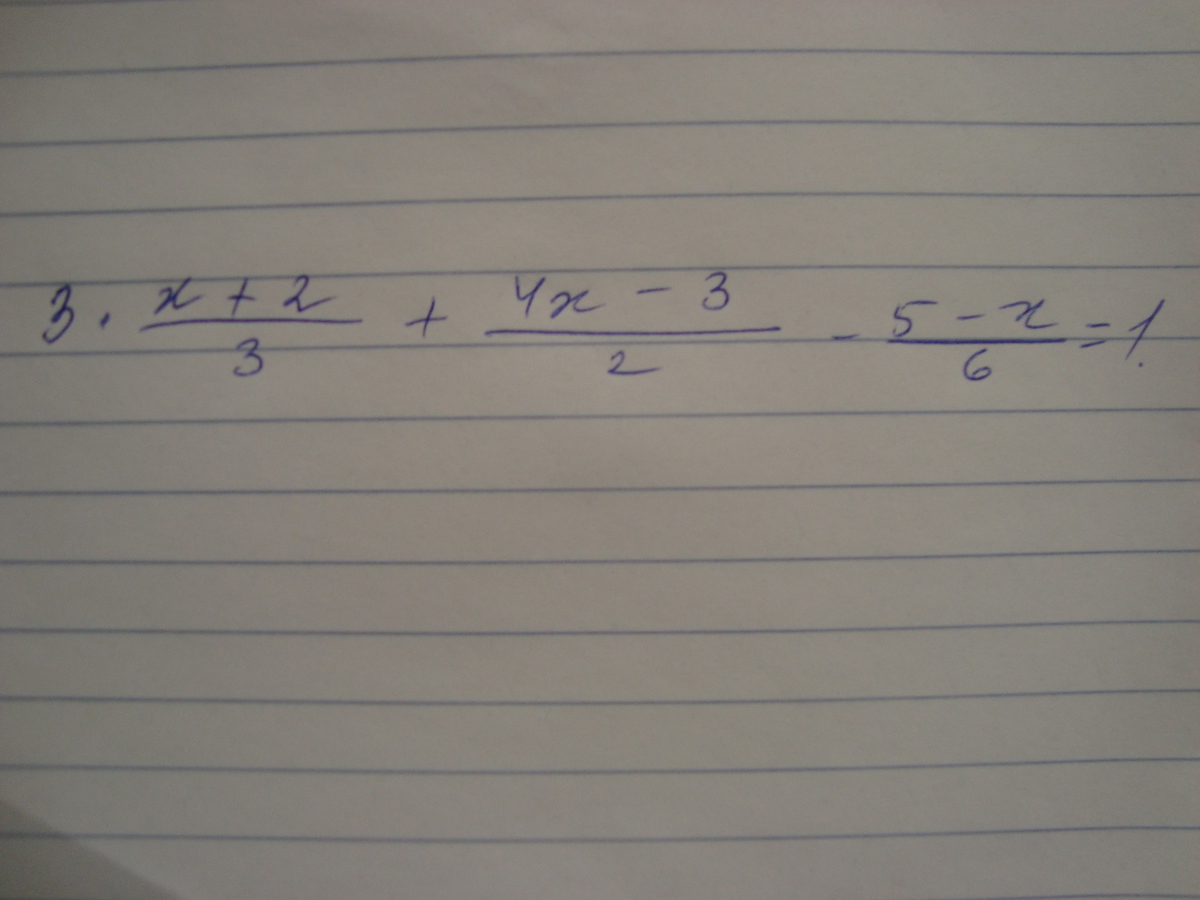 3. (x + 2)/3 + (4x - 3)/2 - (5 - x)/6 = 1.